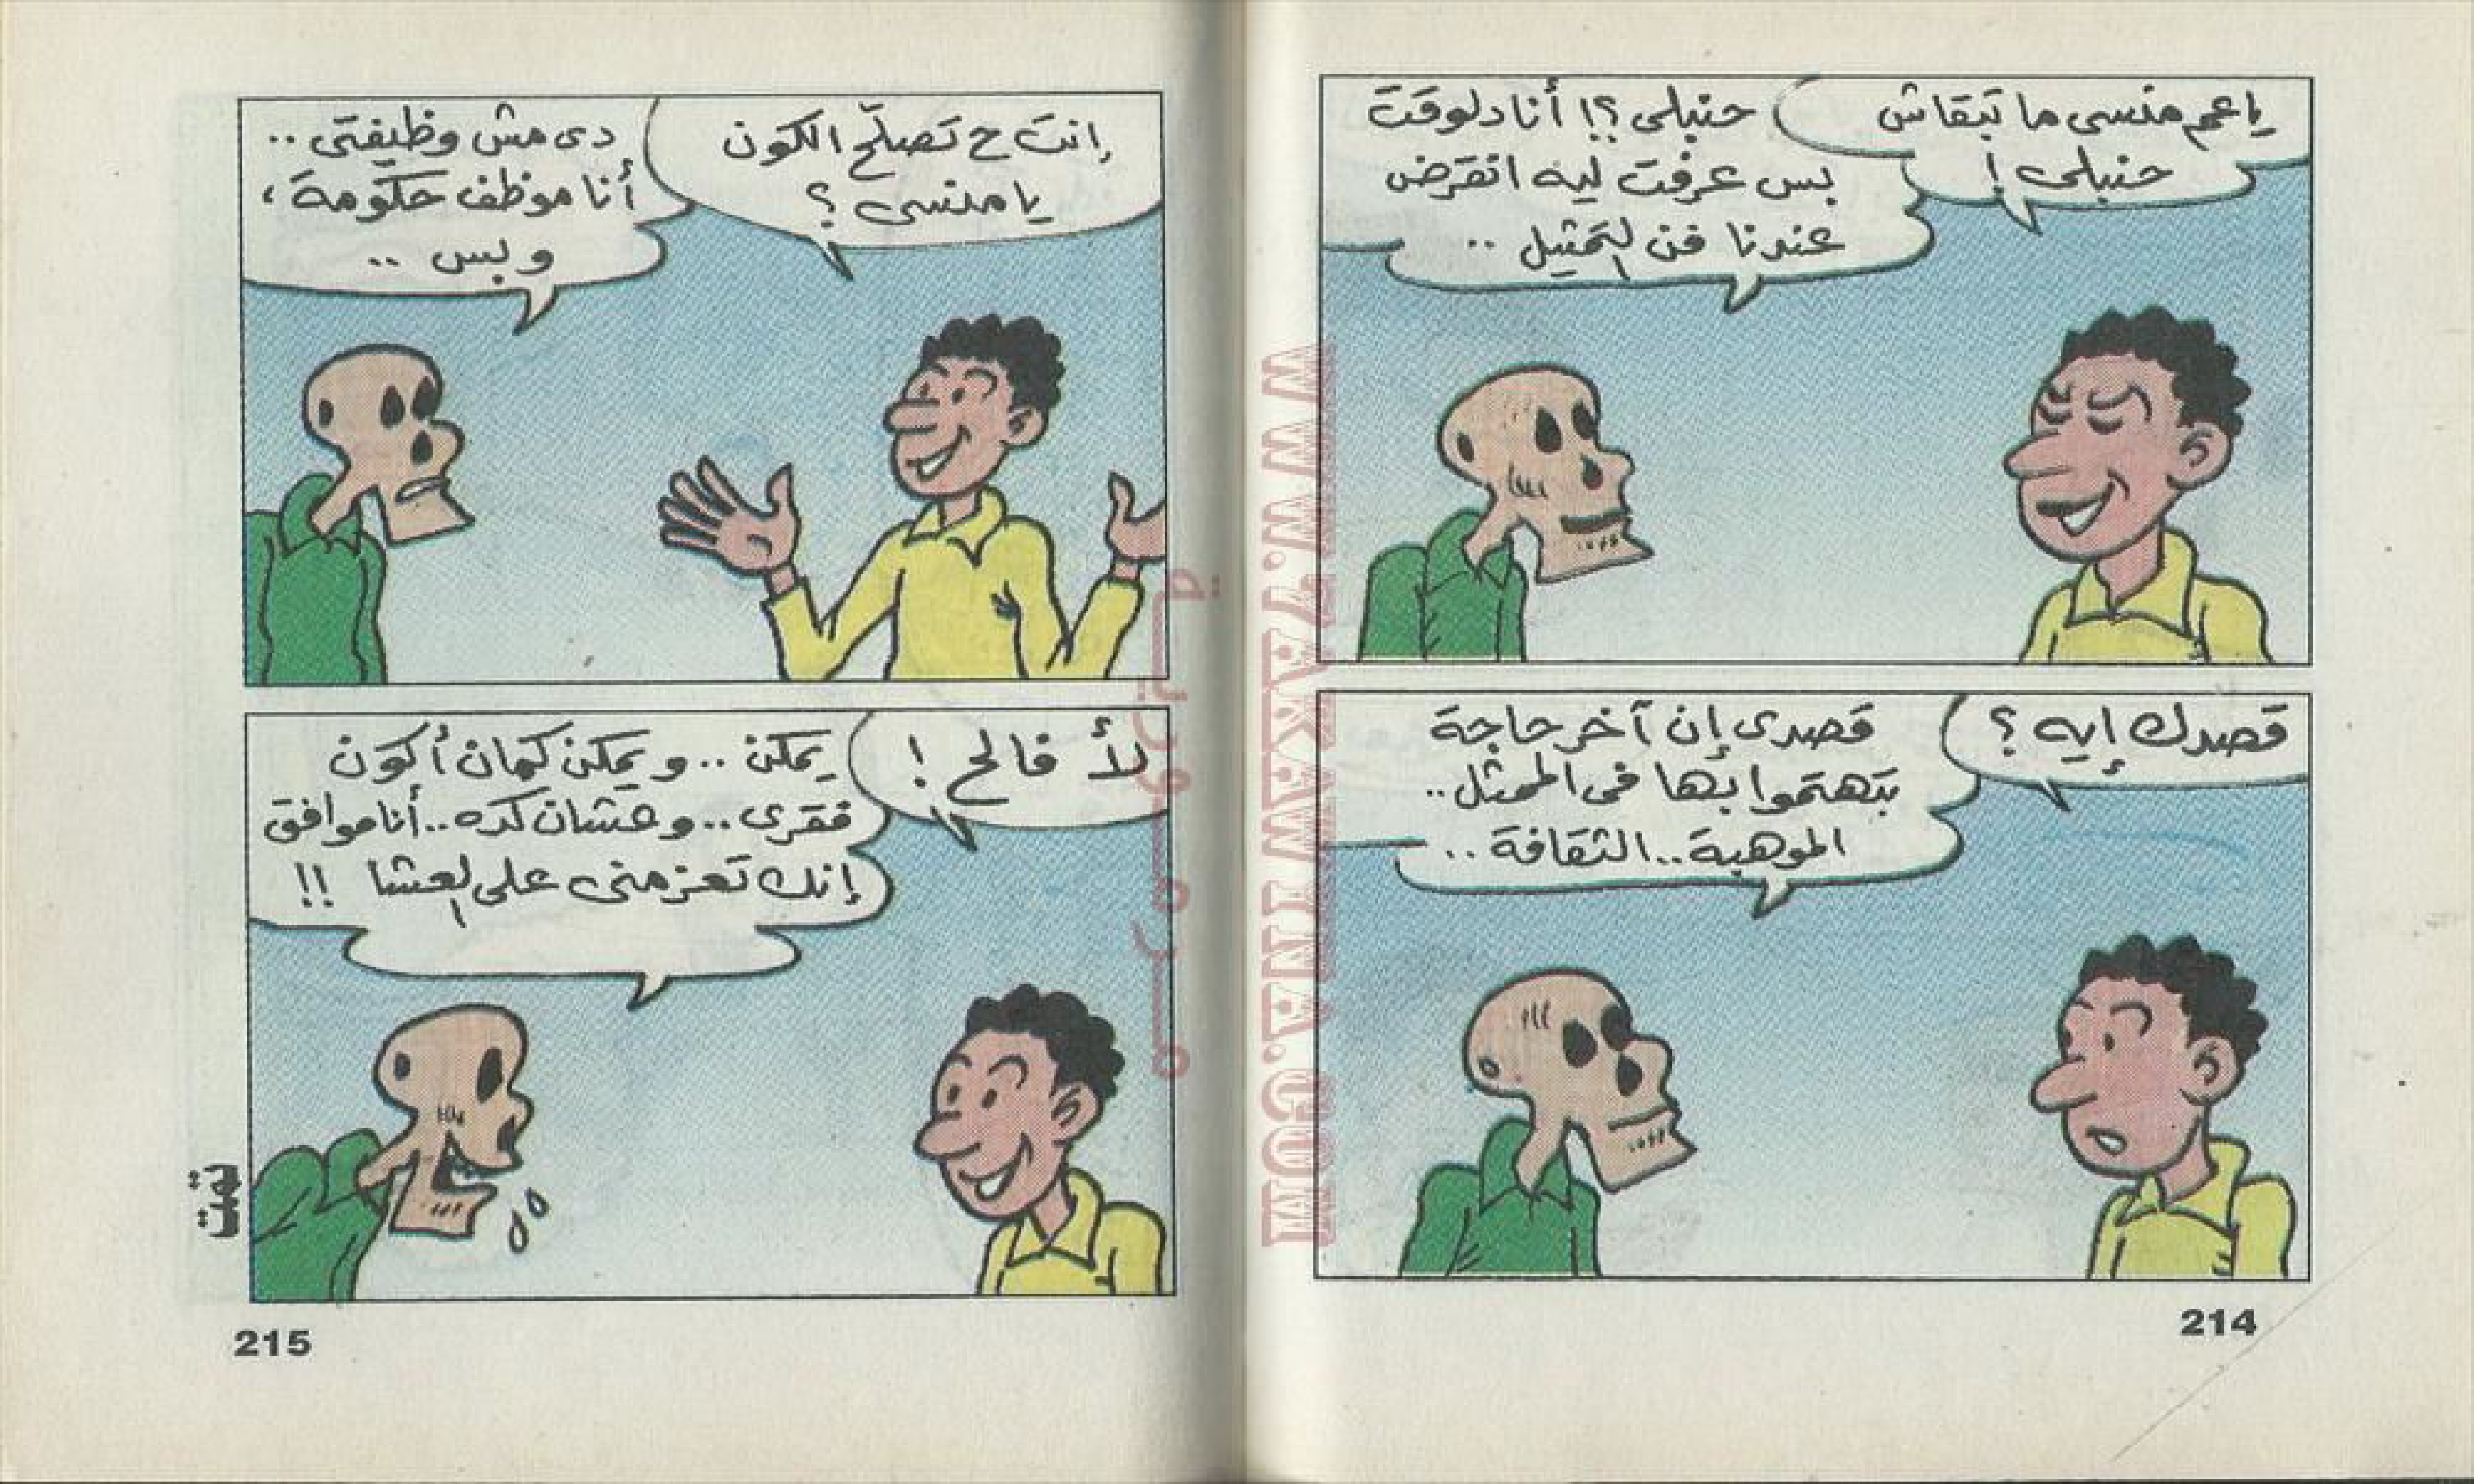 يا عم منسى ما تبقاش
حنبلى !
حنبلى ؟! أنا دلوقت
بس عرفت ليه انقرض
عندنا فن التمثيل ..
قصدك إيه ؟
قصدى إن آخر حاجة
بتهتموا بها فى الممثل ..
الموهبة .. الثقافة ..
214
إنت ح تصلّح الكون
يا منسى ؟
دى مش وظيفتى ..
أنا موظف حكومة ،
و بس ..
لأ فالح !
يمكن .. و يمكن كمان أكون
فقرى .. وعشان كده .. أنا موافق
إنك تعزمنى على العشا !!
تمت
215
WWW.ARAKEWTNA.COM